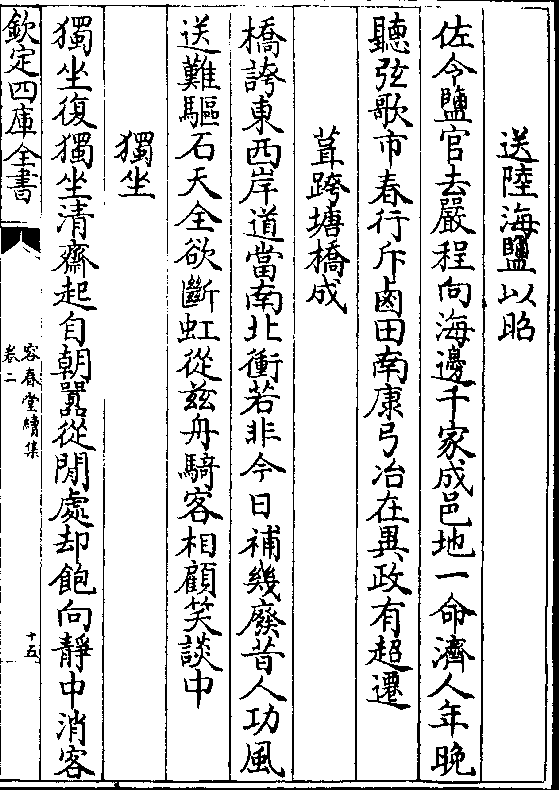 送陸海鹽以昭
佐令鹽官去嚴程向海邊千家成邑地一命濟人年晚
聽弦歌市春行斥鹵田南康弓冶在異政有超遷
葺跨塘橋成
橋誇東西岸道當南北衝若非今日補幾廢昔人功風
送難驅石天全欲斷虹從兹舟騎客相顧笑談中
獨坐
獨坐復獨坐清齋起自朝囂從閒處却飽向靜中消客
欽定四庫全書
容春堂續集
卷二
十五